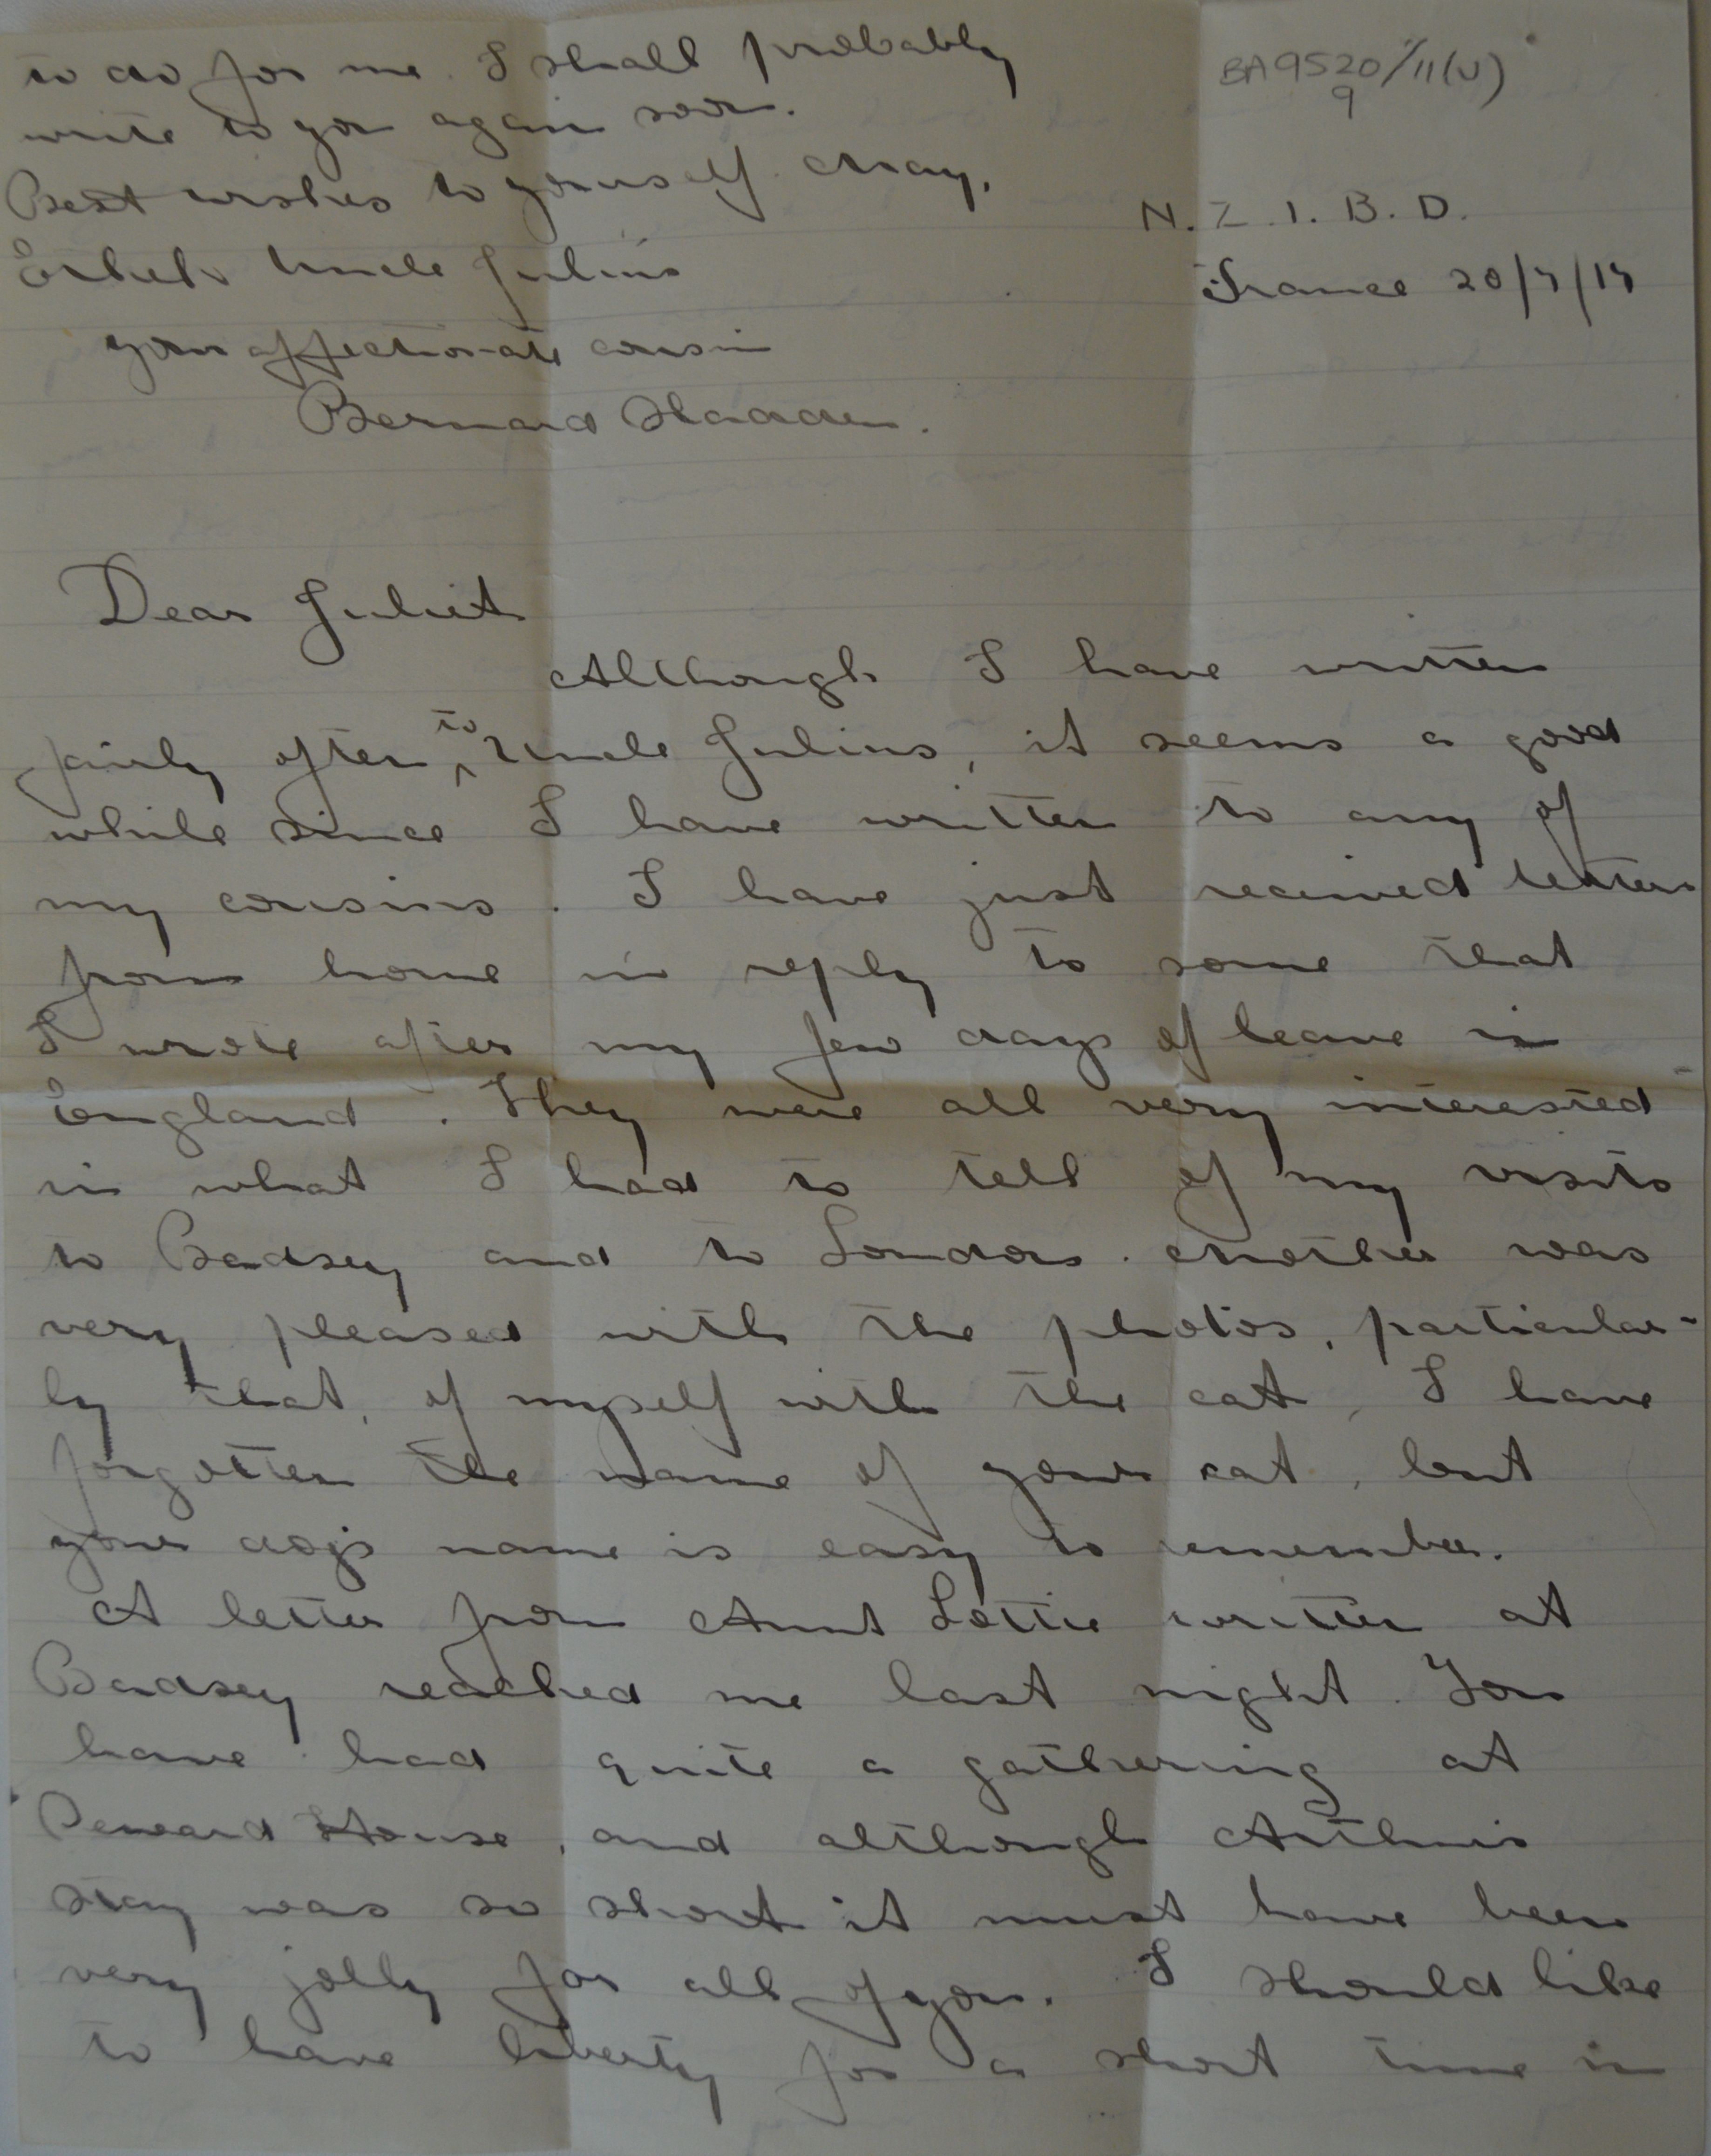 to do for me. I shall probably
write to you again soon.
Best wishes to yourself, May,
Ethel & Uncle Julius
your affectionate cousin
Bernard Sladden.
BA9520/11(v)
9
N. Z. I. B. D.
France 20/7/17
Dear Juliet
Although I have written
fairly often to Uncle Julius, it seems a good
while since I have written to any of
my cousins. I have just received letters
from home in reply to some that
I wrote after my few days of leave in
England. They were all very interested
in what I had to tell of my visits
to Badsey and to London. Mother was
very pleased with the photos, particular-
ly that, of myself with the cat, I have
forgotten the name of your cat, but
your dog's name is easy to remember.
A letter from Aunt Lottie written at
Badsey reached me last night. You
have had quite a gathering at
Seward House, and although Arthur's
stay was so short it must have been
very jolly for all of you. I should like
to have liberty for a short time in